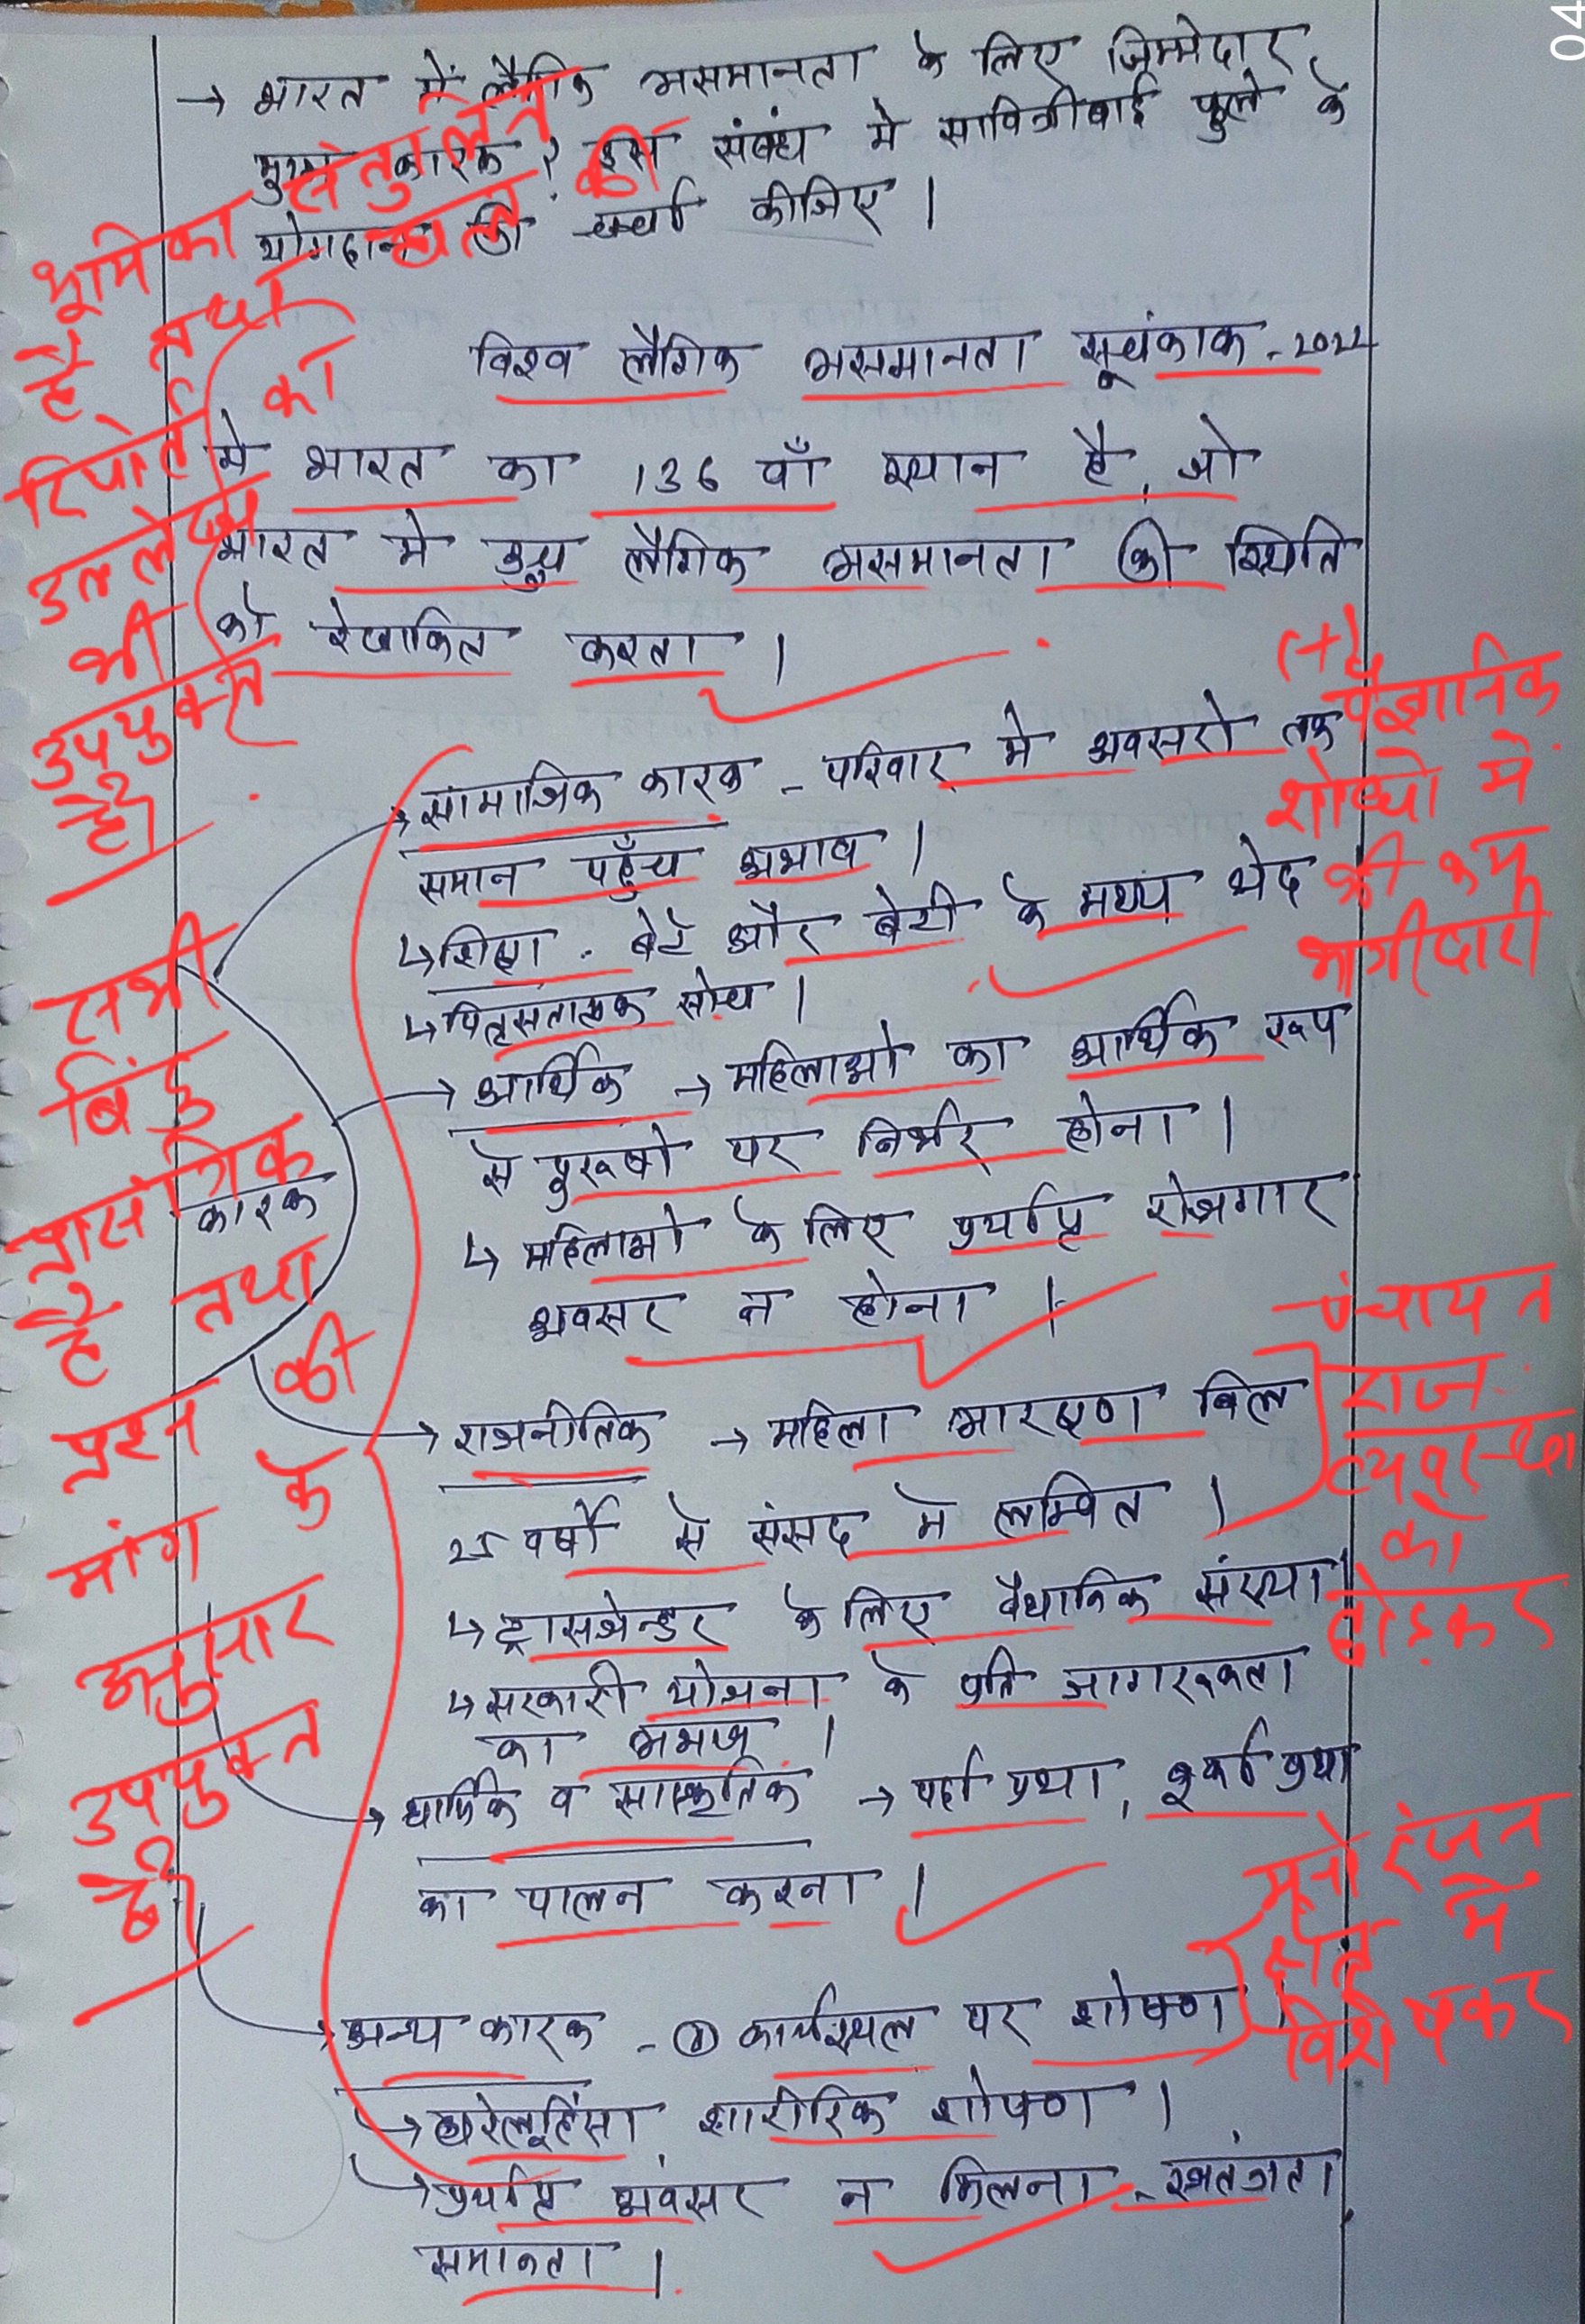 04
→ भारत में लैंगिक असमानता के लिए जिम्मेदार
मुख्य कारक? इस संबंध मे सावित्रीबाई फुले के
योगदान की चर्चा कीजिए।
भूमिका संतुलित
है तथा
रिपोर्ट का
उल्लेख
भी
उपयुक्त
है।
विश्व लैंगिक असमानता सूचंकाक-2022
मे भारत का 136 वाँ स्थान है, जो
भारत मे लैगिक असमानता की स्थिति
को रेखाकित करता।
→ सामाजिक कारक - परिवार मे अवसरो तक
समान पहुँच अभाव।
↳ शिक्षा - बेटे और बेटी के मध्य भेद
↳ पितृसतात्मक सोच।
(+) वैज्ञानिक
शोधों में
की कम
भागीदारी
→ आर्थिक → महिलाओ का आर्थिक रूप
से पुरूषो पर निर्भर होना।
↳ महिलाओ के लिए पर्याप्त रोजगार
अवसर न होना।
कारक
सभी
बिंदु
प्रासंगिक
है तथा
प्रश्न की
मांग के
अनुसार
उपयुक्त
है।
→ राजनीतिक → महिला आरक्षण बिल
25 वर्षो से संसद मे लम्बित।
पंचायत
राज
व्यवस्था
को
छोड़कर
↳ ट्रासजेन्डर के लिए वैधानिक संरक्षा
↳ सरकारी योजना के प्रति जागरूकता
का अभाव।
→ धार्मिक व सांस्कृतिक → पर्दा प्रथा, बुर्का प्रथा
का पालन करना।
→ अन्य कारक - कार्यस्थल पर शोषण
मनोरंजन
क्षेत्र में
विशेषकर
→ घरेलू हिंसा, शारीरिक शोषण।
→ पर्याप्त अवसर न मिलना - स्वतंत्रता
समानता।